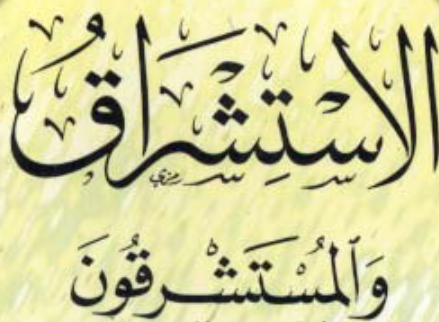 الاِسْتِشْرَاقُ
وَٱلْمُسْتَشْرِقُونَ